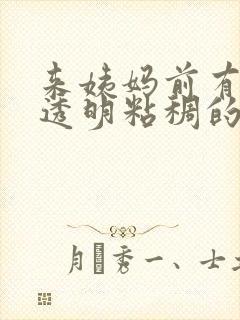 来姨妈前有
透明粘稠的
月 秀一、士